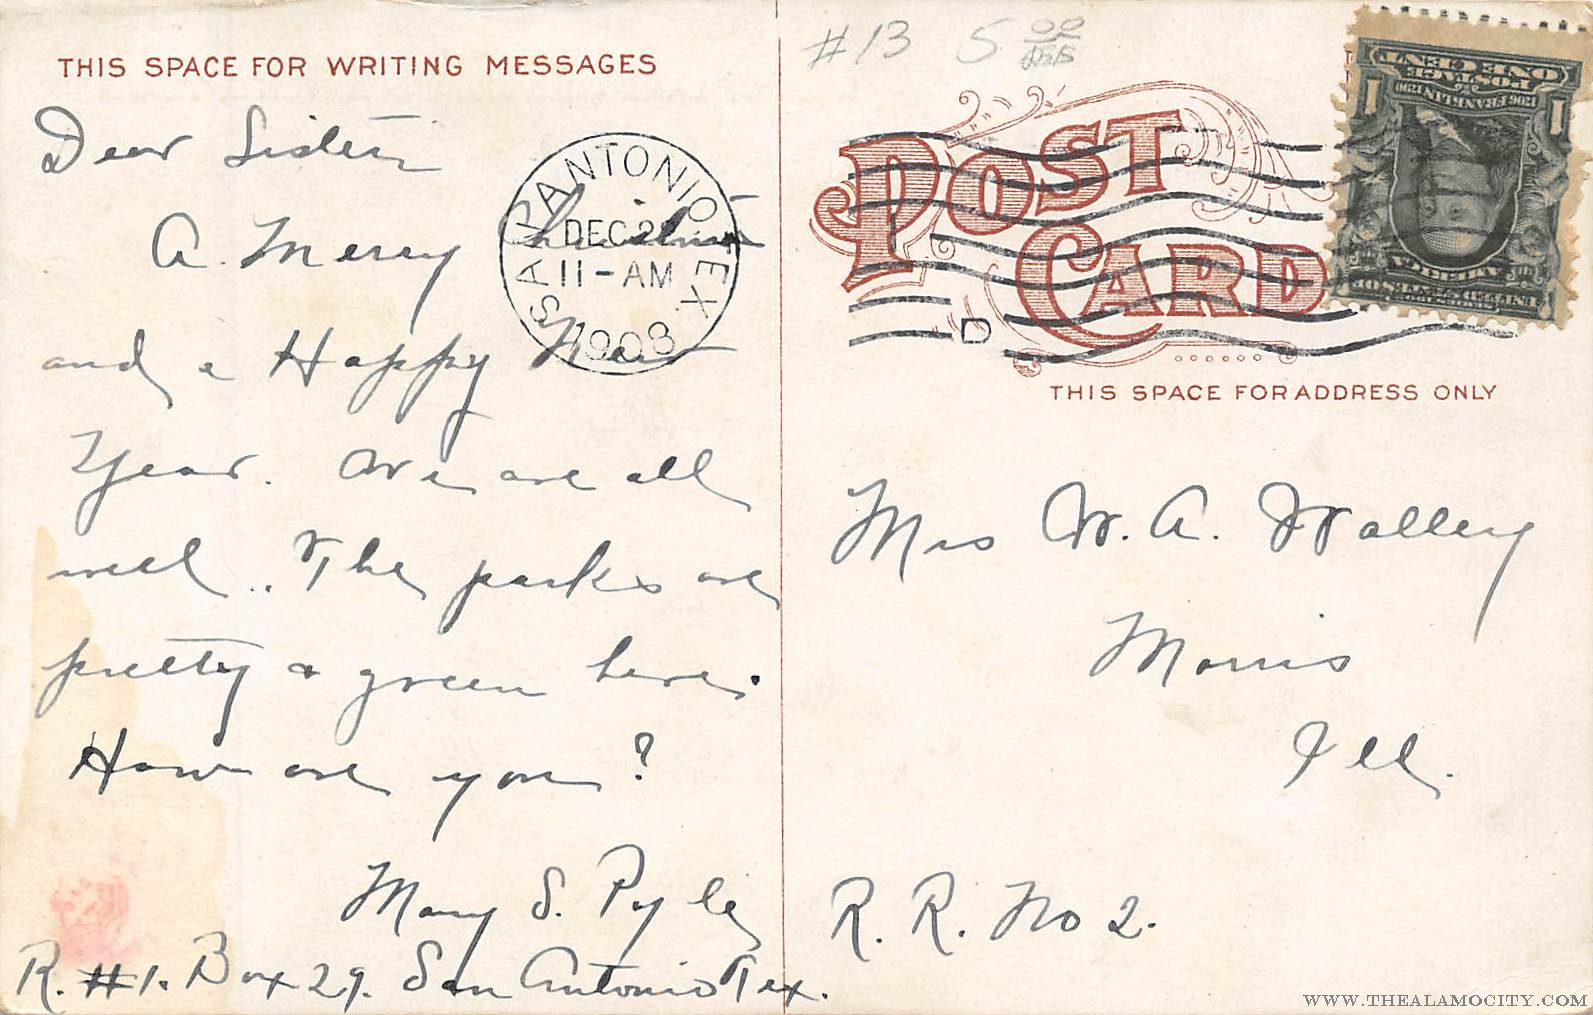 THIS SPACE FOR WRITING MESSAGES
Dear Sister:
A. Merry Christmas
and a Happy New
Year. We are all
well.. The parks are
pretty & green here.
How are you?
Mary S. Pyle
R. #1. Box 29. San Antonio Tex.
SAN ANTONIO TEX.
DEC 2
11-AM
1908
D
#13 5 00
POST CARD
THIS SPACE FOR ADDRESS ONLY
POSTAGE
ONE CENT
1706 FRANKLIN 1790
1 1
UNITED STATES OF
AMERICA
Mrs W. A.
Morris
Ill.
R. R. No 2.
WWW.THEALAMOCITY.COM